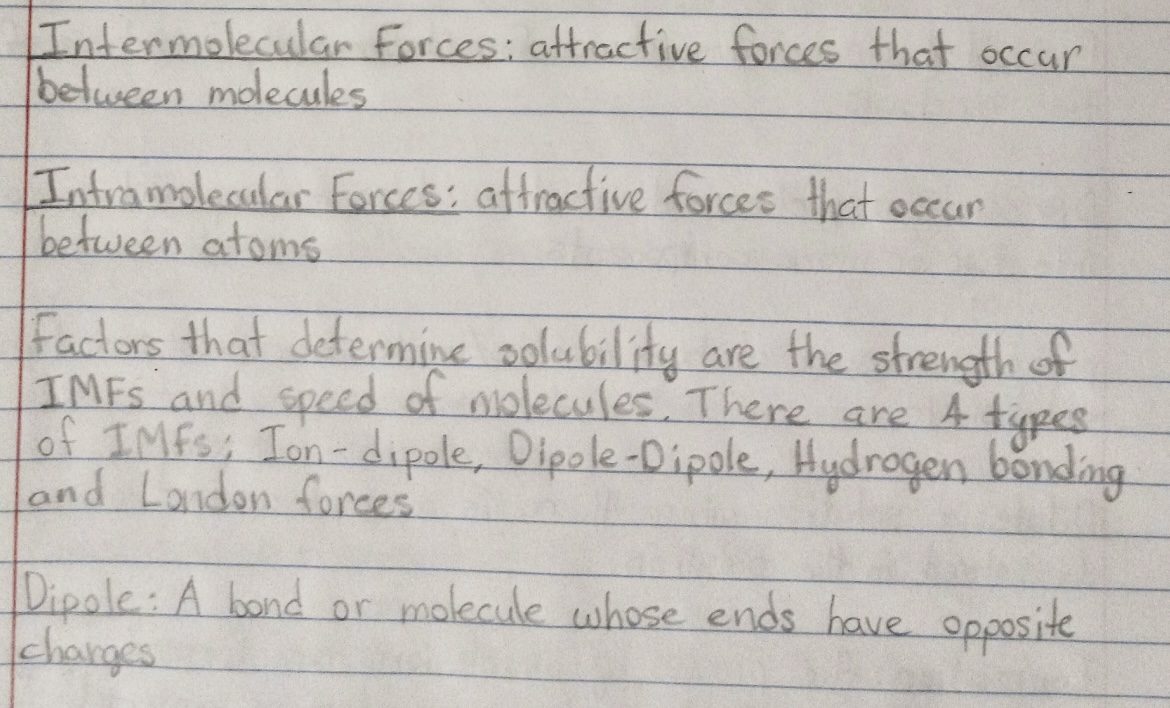 Intermolecular Forces: attractive forces that occur
between molecules
Intramolecular Forces: attractive forces that occur
between atoms
Factors that determine solubility are the strength of
IMFs and speed of molecules. There are 4 types
of IMFs; Ion-dipole, Dipole-Dipole, Hydrogen bonding
and London forces
Dipole: A bond or molecule whose ends have opposite
charges